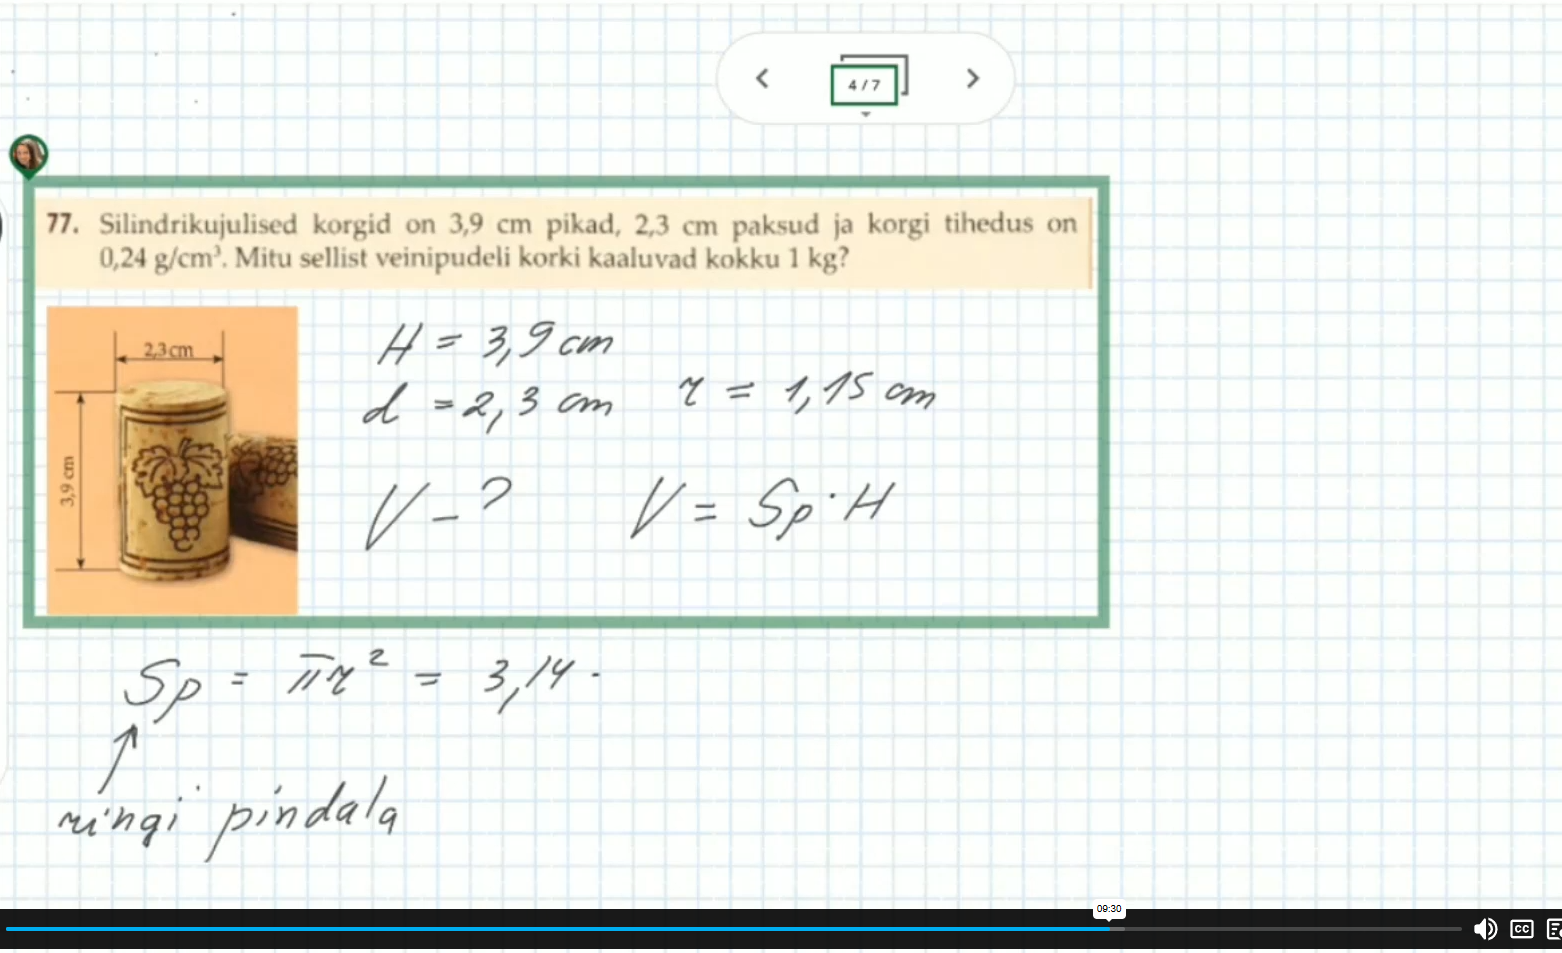 4 / 7
77. Silindrikujulised korgid on 3,9 cm pikad, 2,3 cm paksud ja korgi tihedus on
0,24 g/cm³. Mitu sellist veinipudeli korki kaaluvad kokku 1 kg?
2,3 cm
3,9 cm
H = 3,9 cm
d = 2,3 cm r = 1,15 cm
V - ? V = Sp · H
Sp = πr² = 3,14 ·
ringi pindala
09:30
CC